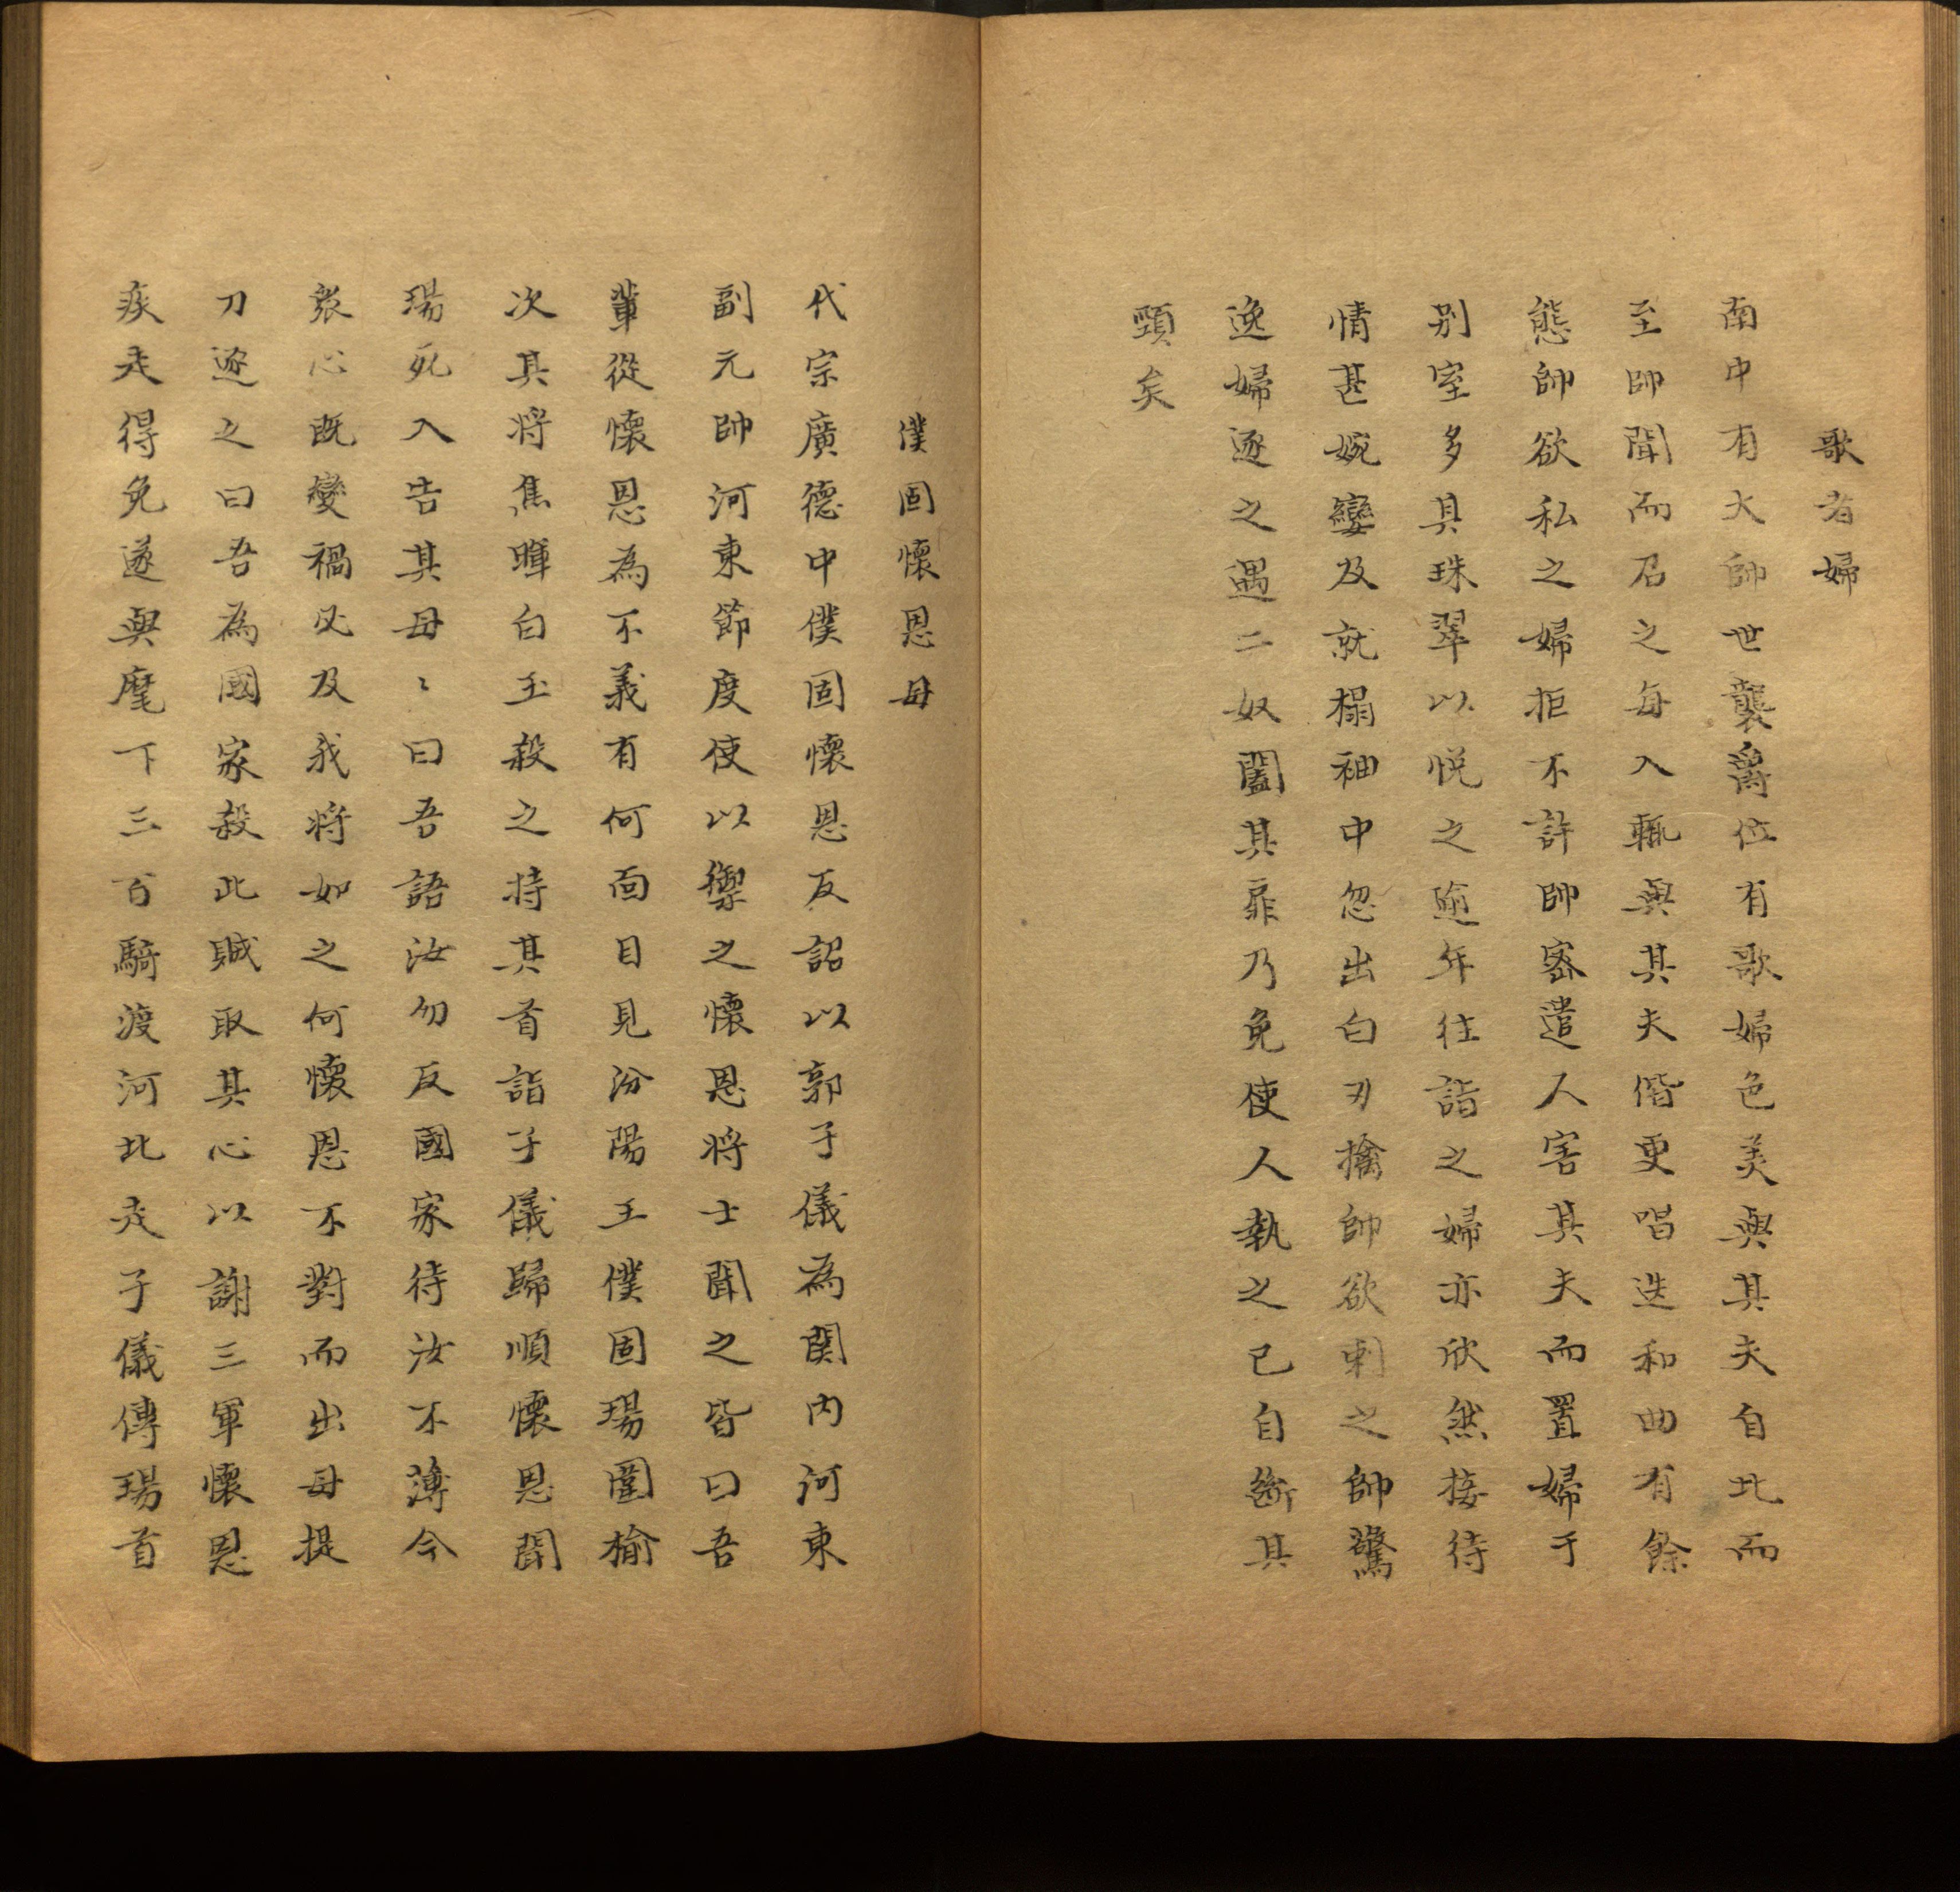 歌者婦
南中有大帥世襲爵位有歌婦色美與其夫自北而
至帥聞而召之每入輒與其夫偕更唱迭和曲有餘
態帥欲私之婦拒不許帥密遣人害其夫而置婦于
别室多具珠翠以悅之逾年往詣之婦亦欣然接待
情甚婉孌及就榻袖中忽出白刃擒帥欲刺之帥驚
逸婦逐之遇二奴闔其扉乃免使人執之已自斷其
頸矣
僕固懷恩母
代宗廣德中僕固懷恩反詔以郭子儀為関内河東
副元帥河東節度使以禦之懷恩将士聞之皆曰吾
輩從懷恩為不義有何面目見汾陽王僕固瑒圍榆
次其将焦暉白玉殺之持其首詣子儀歸順懷恩聞
瑒死入告其母〻曰吾語汝勿反國家待汝不薄今
衆心既變禍必及我将如之何懷恩不對而出母提
刀逐之曰吾為國家殺此賊取其心以謝三軍懷恩
疾走得免遂與麾下三百騎渡河北走子儀傳瑒首